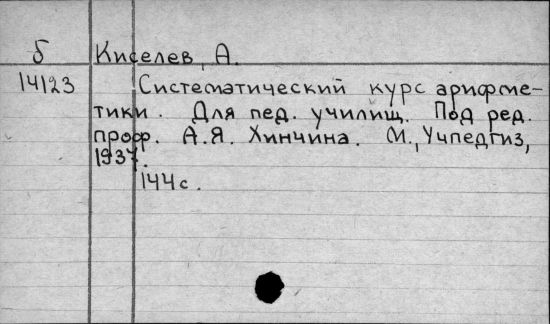 б Киселев, А.
14123 Систематический курс арифме-
тики. Для пед. училищ. Под ред.
проф. А.Я. Хинчина. М., Учпедгиз,
1937.
144 с.